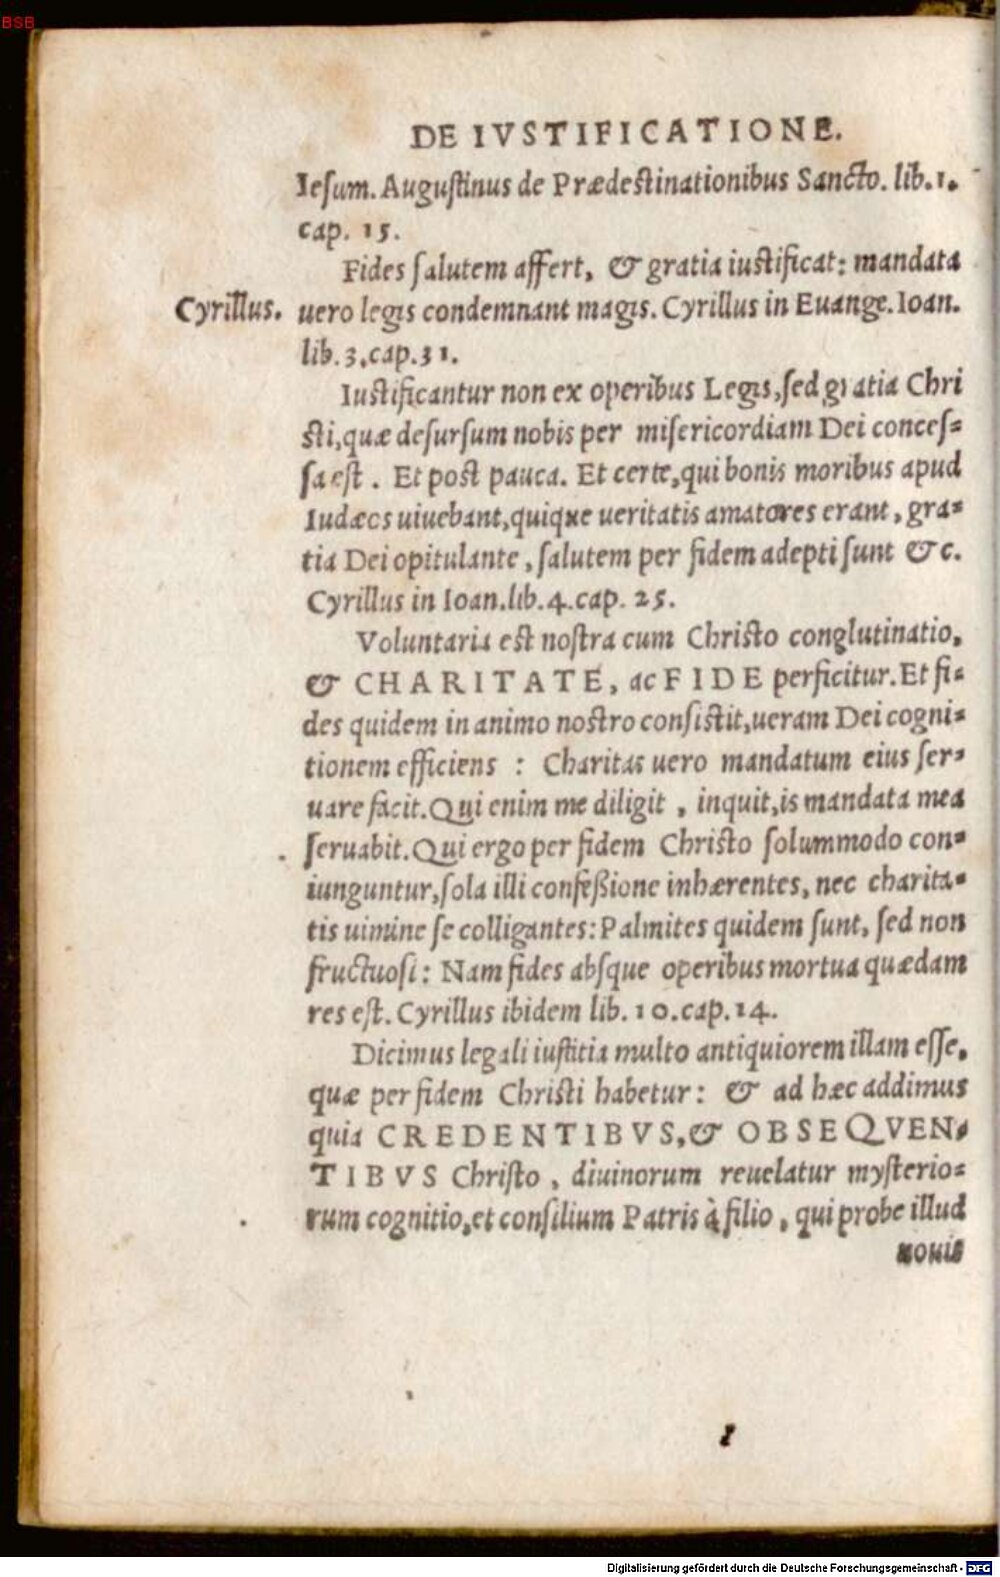 BSB
DE IVSTIFICATIONE.
Iesum. Augustinus de Prædestinationibus Sancto. lib. 1.
cap. 15.
Fides salutem affert, & gratia iustificat: mandata
Cyrillus. uero legis condemnant magis. Cyrillus in Euange. Ioan.
lib. 3. cap. 31.
Iustificantur non ex operibus Legis, sed gratia Chri
sti, quæ desursum nobis per misericordiam Dei conces-
sa est. Et post pauca. Et certe, qui bonis moribus apud
Iudæos uiuebant, quique ueritatis amatores erant, gra-
tia Dei opitulante, salutem per fidem adepti sunt &c.
Cyrillus in Ioan. lib. 4. cap. 25.
Voluntaria est nostra cum Christo conglutinatio,
& CHARITATE, ac FIDE perficitur. Et fi-
des quidem in animo nostro consistit, ueram Dei cogni-
tionem efficiens : Charitas uero mandatum eius ser-
uare facit. Qui enim me diligit, inquit, is mandata mea
seruabit. Qui ergo per fidem Christo solummodo con-
iunguntur, sola illi confeßione inhærentes, nec charita-
tis uimine se colligantes: Palmites quidem sunt, sed non
fructuosi: Nam fides absque operibus mortua quædam
res est. Cyrillus ibidem lib. 10. cap. 14.
Dicimus legali iustitia multo antiquiorem illam esse,
quæ per fidem Christi habetur: & ad hæc addimus
quia CREDENTIBVS, & OBSEQVEN-
TIBVS Christo, diuinorum reuelatur mysterio-
rum cognitio, et consilium Patris à filio, qui probe illud
nouit
Digitalisierung gefördert durch die Deutsche Forschungsgemeinschaft - DFG